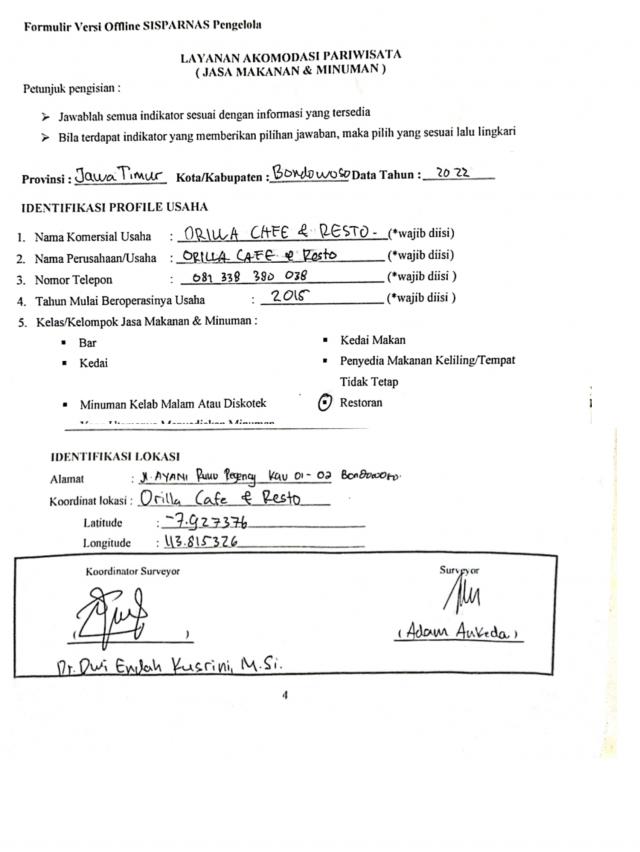 Formulir Versi Offline SISPARNAS Pengelola
LAYANAN AKOMODASI PARIWISATA
( JASA MAKANAN & MINUMAN )
Petunjuk pengisian :
➢ Jawablah semua indikator sesuai dengan informasi yang tersedia
➢ Bila terdapat indikator yang memberikan pilihan jawaban, maka pilih yang sesuai lalu lingkari
Provinsi : Jawa Timur Kota/Kabupaten : Bondowoso Data Tahun : 2022
IDENTIFIKASI PROFILE USAHA
1. Nama Komersial Usaha : ORILLA CAFE & RESTO - (*wajib diisi)
2. Nama Perusahaan/Usaha : ORILLA CAFE & Resto (*wajib diisi)
3. Nomor Telepon : 081 338 380 038 (*wajib diisi )
4. Tahun Mulai Beroperasinya Usaha : 2015 (*wajib diisi )
5. Kelas/Kelompok Jasa Makanan & Minuman :
▪ Bar ▪ Kedai Makan
▪ Kedai ▪ Penyedia Makanan Keliling/Tempat
Tidak Tetap
▪ Minuman Kelab Malam Atau Diskotek ▪ Restoran
IDENTIFIKASI LOKASI
Alamat : Jl. AYANI Ruko Regency Kav 01-02 Bondowoso.
Koordinat lokasi : Orilla Cafe & Resto
Latitude : -7.927376
Longitude : 113.815326
Koordinator Surveyor Surveyor
( ) ( Adam Ankeda )
Dr. Dwi Endah Kusrini, M.Si.
4